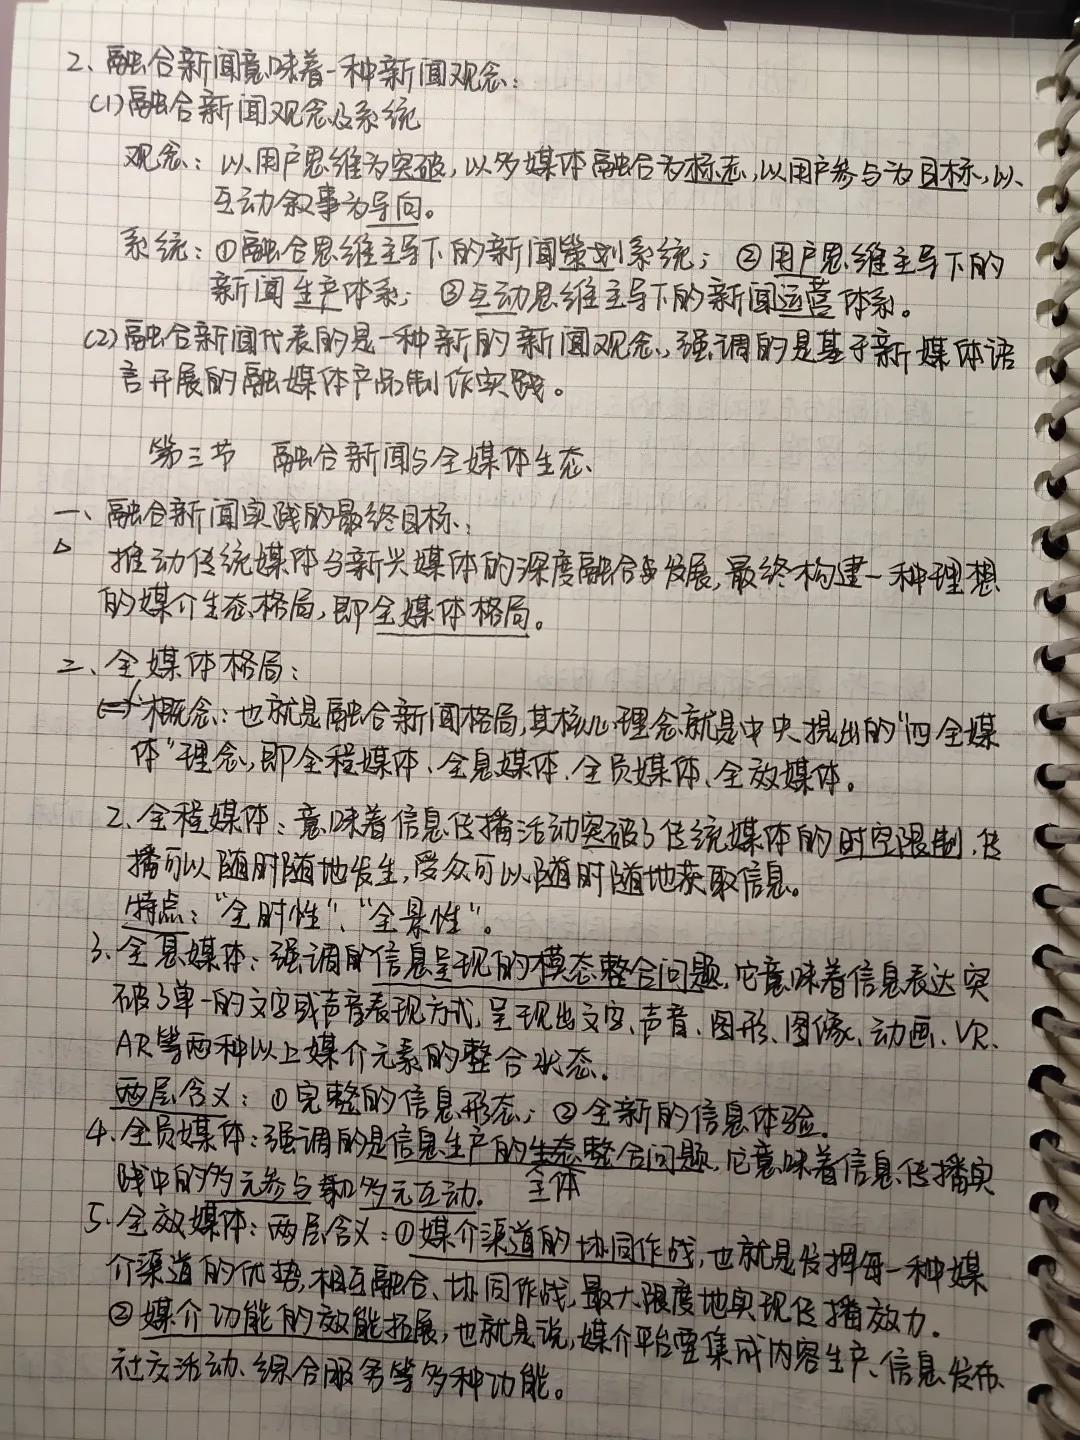 2、融合新闻意味着一种新闻观念：
(1)融合新闻观念及系统
观念：以用户思维为突破,以多媒体融合为标志,以用户参与为目标,以
互动叙事为导向。
系统：①融合思维主导下的新闻策划系统；②用户思维主导下的
新闻生产体系；③互动思维主导下的新闻运营体系。
(2)融合新闻代表的是一种新的新闻观念,强调的是基于新媒体语
言开展的融媒体产品制作实践。
第三节 融合新闻与全媒体生态
一、融合新闻实践的最终目标：
推动传统媒体与新兴媒体的深度融合与发展,最终构建一种理想
的媒介生态格局,即全媒体格局。
二、全媒体格局：
1、概念：也就是融合新闻格局,其核心理念就是中央提出的“四全媒
体”理念,即全程媒体、全息媒体、全员媒体、全效媒体。
2、全程媒体：意味着信息传播活动突破了传统媒体的时空限制,传
播可以随时随地发生,受众可以随时随地获取信息。
特点：“全时性”、“全景性”。
3、全息媒体：强调的信息呈现的模态整合问题,它意味着信息表达突
破了单一的文字或声音表现方式,呈现出文字、声音、图形、图像、动画、VR、
AR等两种以上媒介元素的整合状态。
两层含义：①完整的信息形态；②全新的信息体验。
4、全员媒体：强调的是信息生产的主体整合问题,它意味着信息传播实
践中的多元参与和多元互动。
5、全效媒体：两层含义：①媒介渠道的协同作战,也就是发挥每一种媒
介渠道的优势,相互融合、协同作战,最大限度地实现传播效力。
②媒介功能的效能拓展,也就是说,媒介平台要集成内容生产、信息发布、
社交活动、综合服务等多种功能。